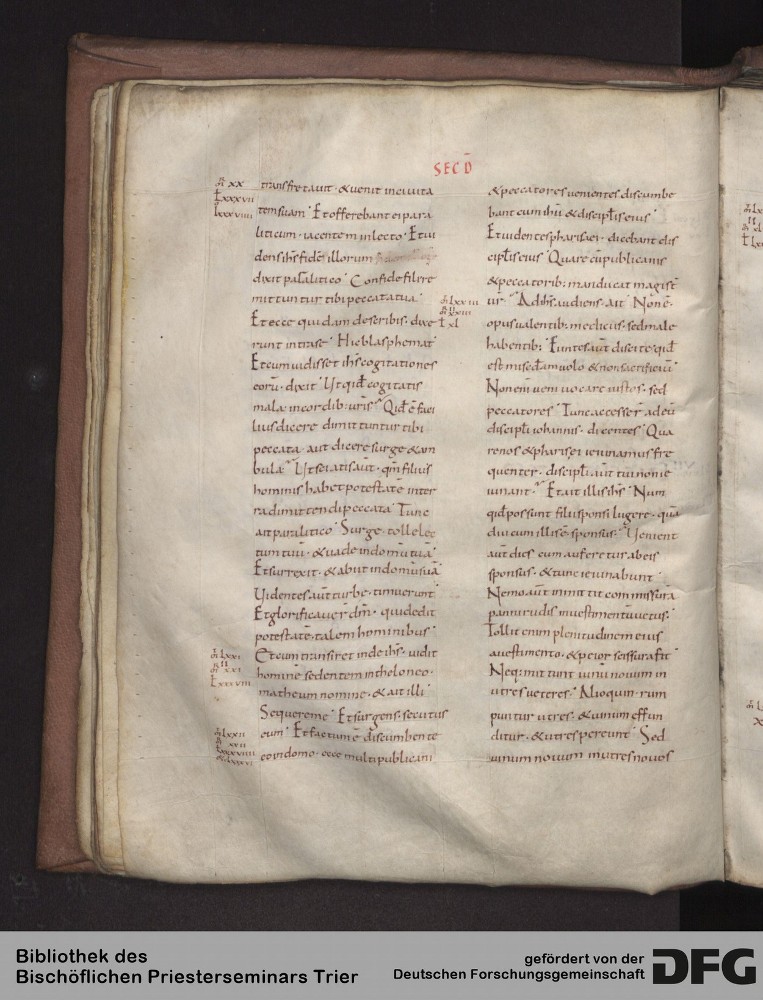 SECD̄
transfretauit · & uenit in ciuita
tem suam · Et offerebant ei para
liticum · iacentem in lecto · Et ui
dens ihs fidē illorum
dixit paralitico · Confide fili re
mittuntur tibi peccata tua ·
Et ecce quidam de scribis · dixe
runt intra se · Hic blasphemat
Et cum uidisset ihs cogitationes
eorū · dixit · Ut qd cogitatis
mala in cordib: uris · Qid ē faci
lius dicere dimittuntur tibi
peccata · aut dicere surge & am
bula · Ut sciatis aūt · qm filius
hominis habet potestatē inter
ra dimittendi peccata · Tunc
ait paralitico · Surge · tolle lec
tum tuū · & uade in domū tuā ·
Et surrexit · & abiit in domū suā
Uidentes aūt turbe · timuerunt
Et glorificauer̄ dm̄ · qui dedit
potestatē talem hominibus ·
Et cum transiret inde ihs · uidit
hominē sedentem in theloneo ·
matheum nomine · & ait illi
Sequere me · Et surgens · secutus
eum · Et factum ē discumbente
eo in domo · ecce multi publicani
& peccatores uenientes discumbe
bant cum ihū & discipłis eius ·
Et uidentes pharisaei · dicebant dis
cipłis eius · Quare cū publicanis
& peccatorib: manducat magist̄
ur̄ · Ad ihs audiens · ait · Non ē ·
opus ualentib: medicus · sed male
habentib: · Euntes aūt discite qid
est misc̄dam uolo & non sacrificiū
Non enī ueni uocare iustos · sed
peccatores · Tunc accesser̄ ad eū
discipłi iohannis · dicentes · Qua
re nos & pharisei ieiunamus fre
quenter · discipłi aūt tui non ie
iunant · Et ait illis ihs · Num
qid possunt filii sponsi lugere · quā
diu cum illis ē sponsus · Uenient
aūt dies cum auferetur ab eis
sponsus · & tunc ieiunabunt ·
Nemo aūt inmittit commissurā
panni rudis in uestimentū uetus ·
Tollit enim plenitudinem eius
a uestimento · & peior scissura fit ·
Neq: mittunt uinū nouum in
utres ueteres · Alioquin rum
puntur utres · & uinum effun
ditur · & utres pereunt · Sed
uinum nouum in utres nouos
Bibliothek des
Bischöflichen Priesterseminars Trier
gefördert von der
Deutschen Forschungsgemeinschaft
DFG